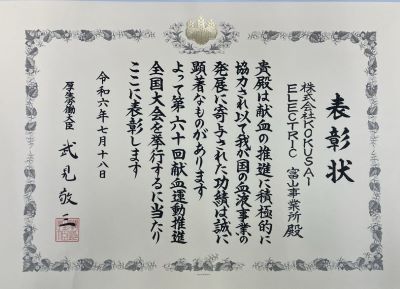 表彰状
株式会社KOKUSAI
ELECTRIC 富山事業所 殿
貴殿は献血の推進に積極的に
協力され以て我が国の血液事業の
発展に寄与された功績は誠に
顕著なものがあります
よって第六十回献血運動推進
全国大会を挙行するに当たり
ここに表彰します
令和六年七月十八日
厚生労働大臣 武見敬三